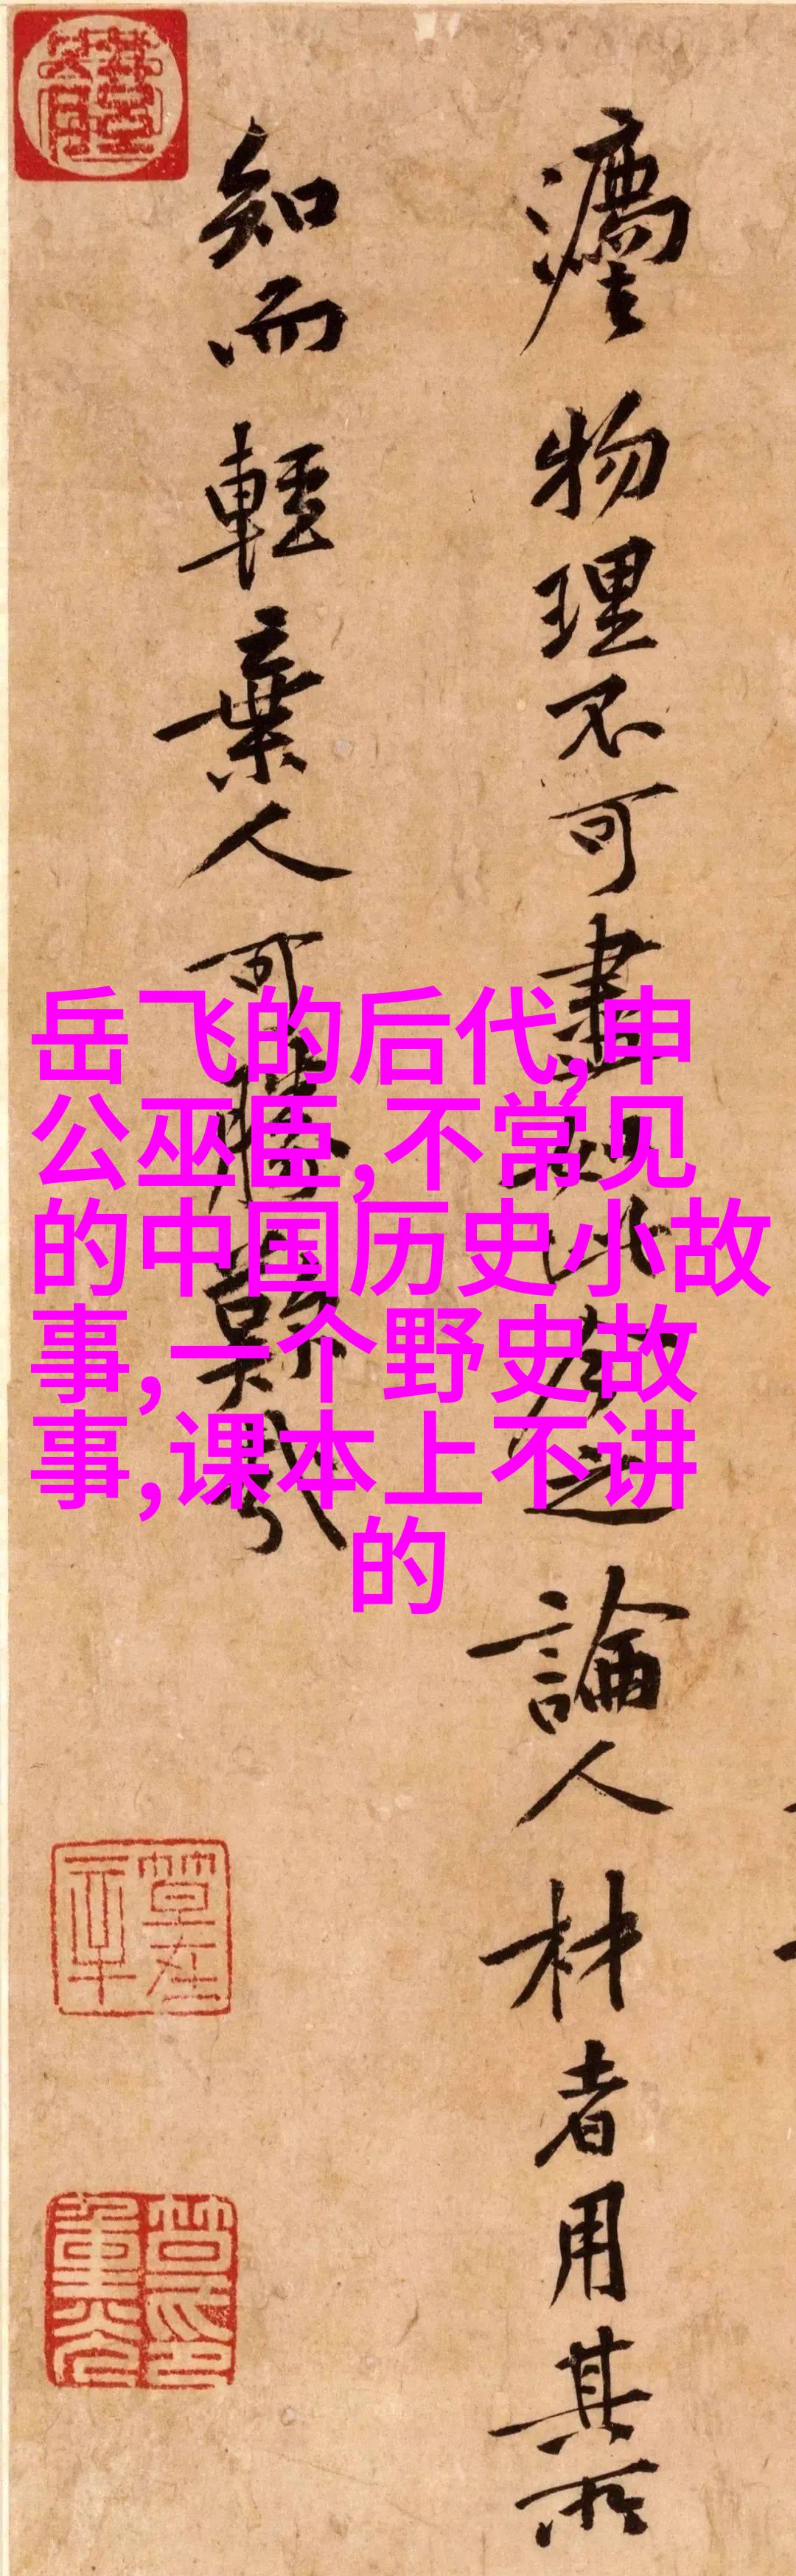 物理不可盡如此 之論人材者用其所
知而輕棄人可勝歎哉
岳飞的后代,申
公巫臣,不常见
的中国历史小故
事,一个野史故
事,课本上不讲
的